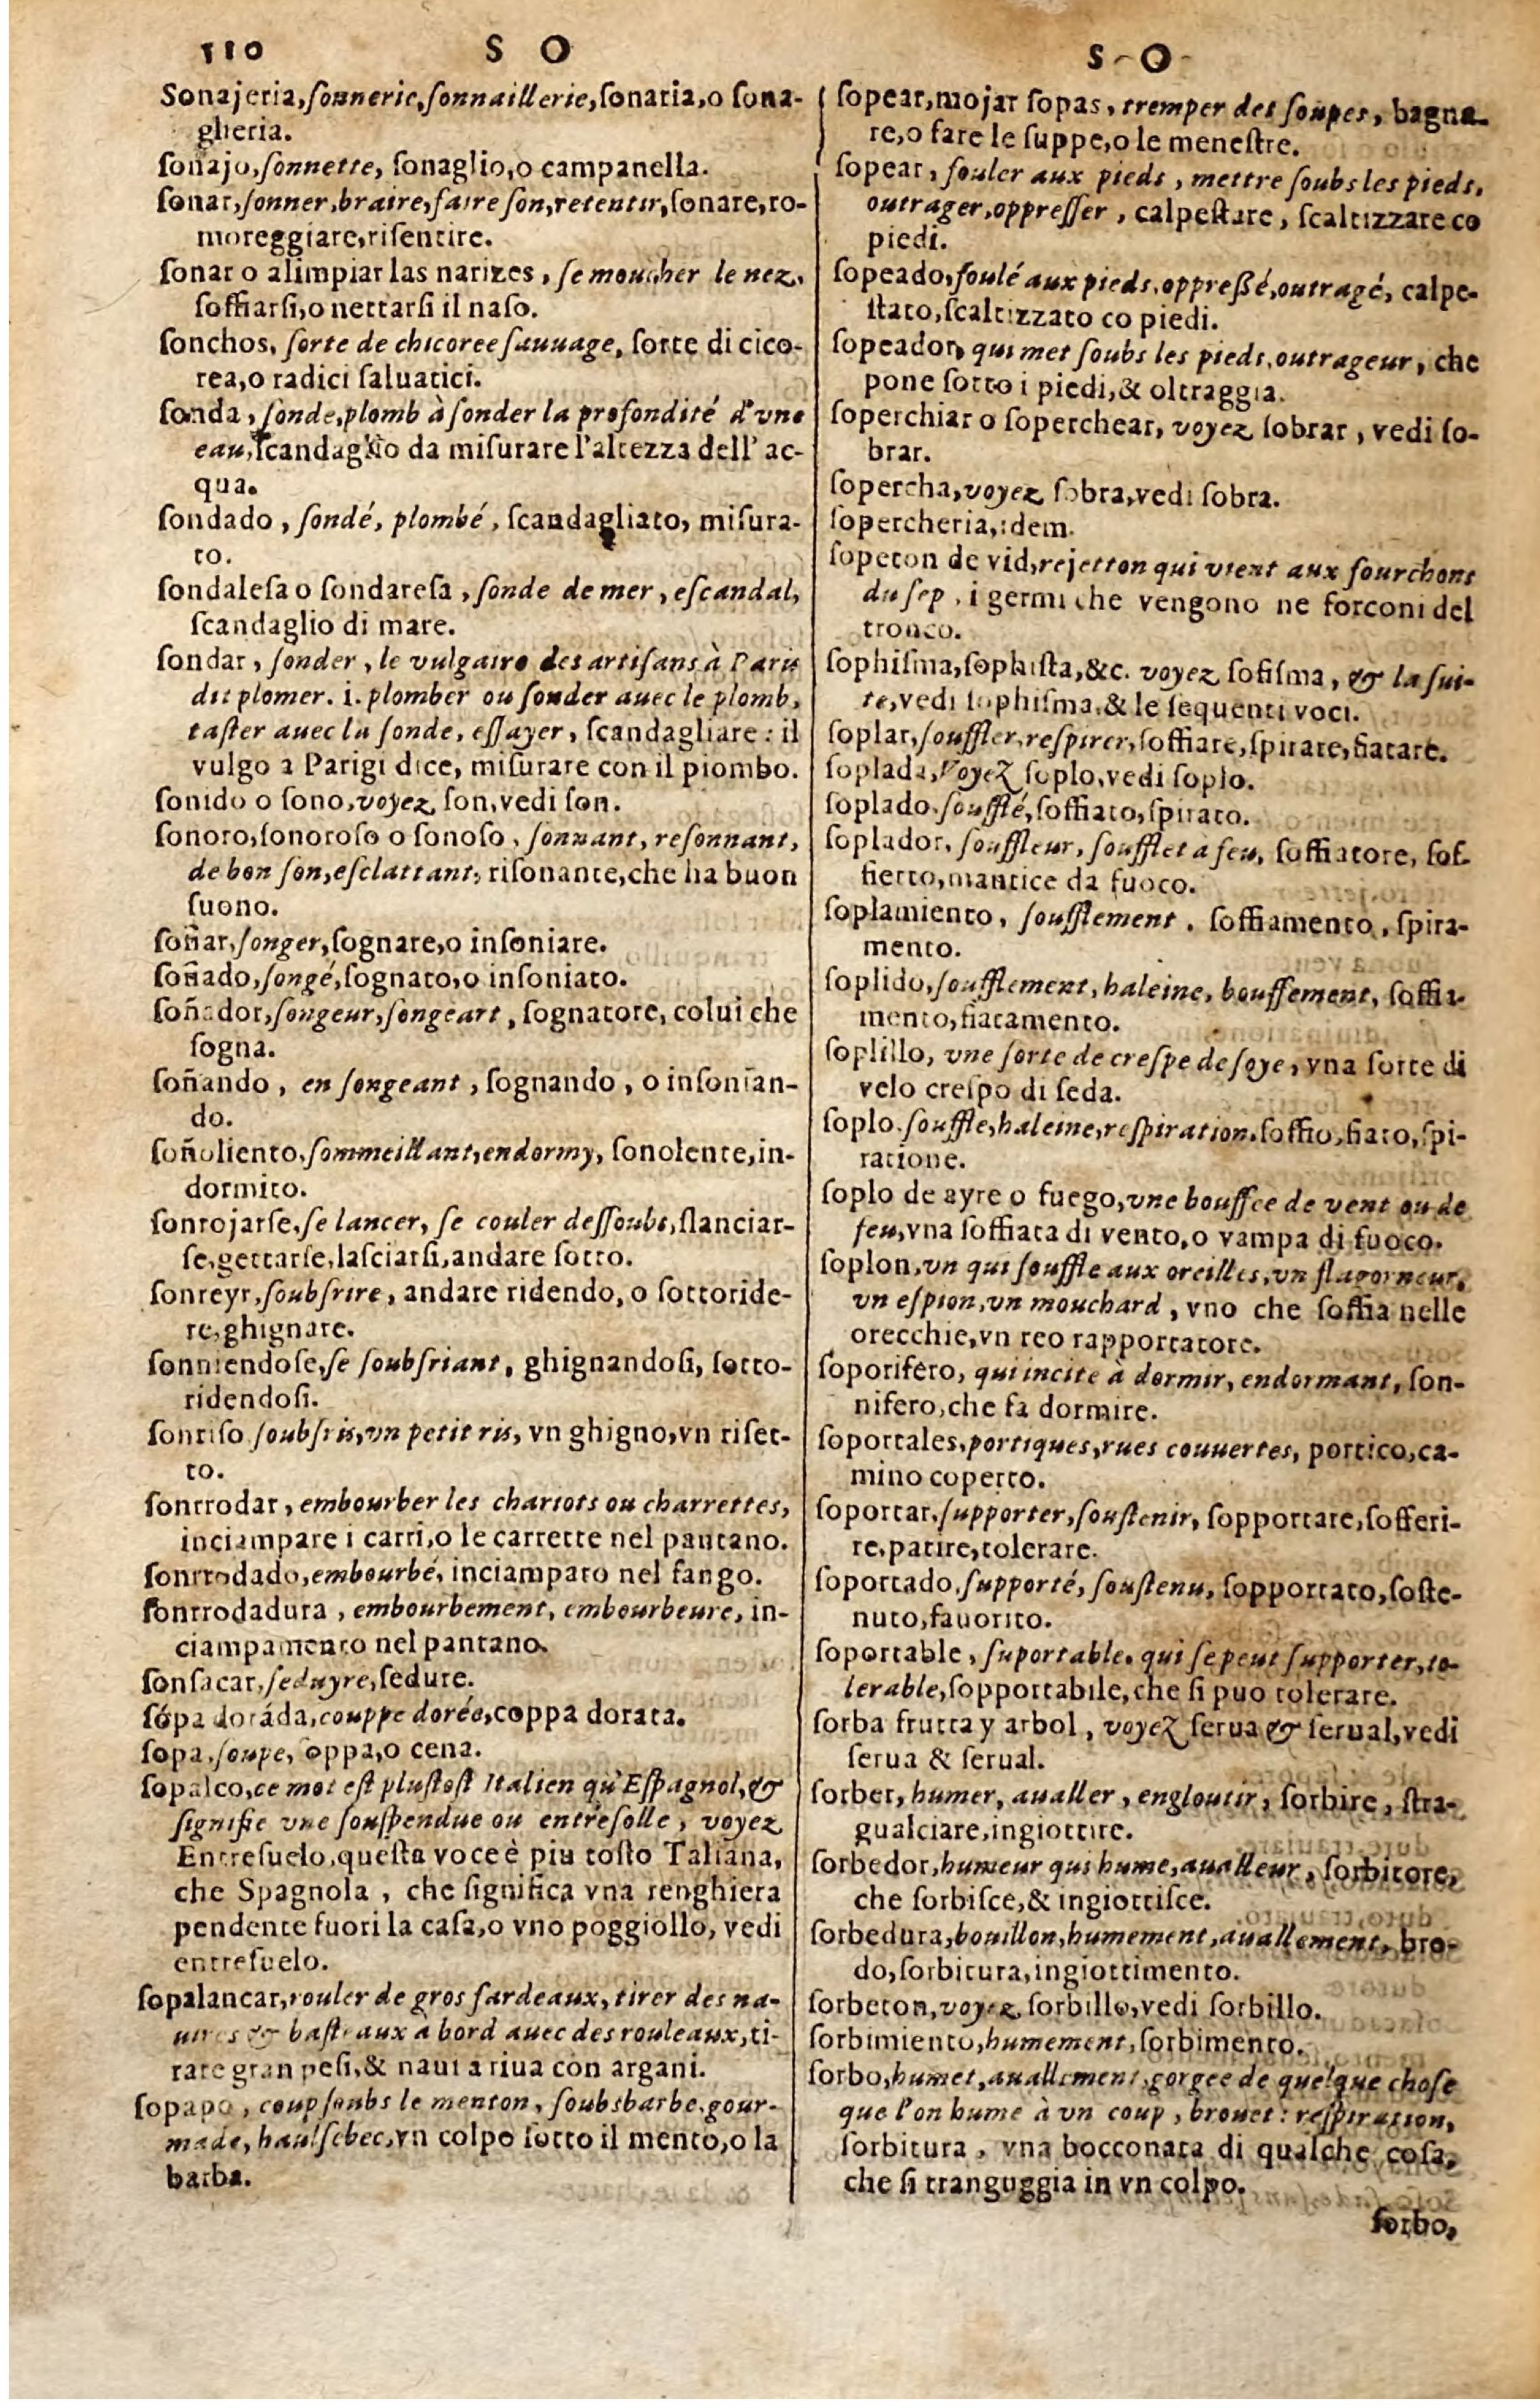 510 S O
Sonajeria, ſonnerie, ſonnaillerie, ſonaria, o ſona-
gheria.
ſonajo, ſonnette, ſonaglio, o campanella.
ſonar, ſonner, braire, faire ſon, retentir, ſonare, ro-
moreggiare, riſentire.
ſonar o alimpiar las narizes, ſe moucher le nez,
ſoffiarſi, o nettarſi il naſo.
ſonchos, ſorte de chicoree ſauuage, ſorte di cico-
rea, o radici ſaluatici.
ſonda, ſonde, plomb à ſonder la profondité d'vne
eau, ſcandaglio da miſurare l'altezza dell' ac-
qua.
ſondado, ſondé, plombé, ſcandagliato, miſura-
to.
ſondaleſa o ſondareſa, ſonde de mer, eſcandal,
ſcandaglio di mare.
ſondar, ſonder, le vulgaire des artiſans à Paris
dit plomer. i. plomber ou ſonder auec le plomb,
taſter auec la ſonde, eſſayer, ſcandagliare: il
vulgo a Parigi dice, miſurare con il piombo.
ſonido o ſono, voyez ſon, vedi ſon.
ſonoro, ſonoroſo o ſonoſo, ſonnant, reſonnant,
de bon ſon, eſclattant, riſonante, che ha buon
ſuono.
ſoñar, ſonger, ſognare, o inſoniare.
ſoñado, ſongé, ſognato, o inſoniato.
ſoñador, ſongeur, ſongeart, ſognatore, colui che
ſogna.
ſoñando, en ſongeant, ſognando, o inſonian-
do.
ſoñoliento, ſommeillant, endormy, ſonolente, in-
dormito.
ſonrojarſe, ſe lancer, ſe couler deſſoubs, ſlanciar-
ſe, gettarſe, laſciarſi, andare ſotto.
ſonreyr, ſoubſrire, andare ridendo, o ſottoride-
re, ghignare.
ſonriendoſe, ſe ſoubſriant, ghignandoſi, ſotto-
ridendoſi.
ſonriſo, ſoubſris, vn petit ris, vn ghigno, vn riſet-
to.
ſontrodar, embourber les chariots ou charrettes,
inciampare i carri, o le carrette nel pantano.
ſontrodado, embourbé, inciampato nel fango.
ſontrodadura, embourbement, embourbeure, in-
ciampamento nel pantano.
ſonſacar, ſeduyre, ſedure.
ſópa doráda, couppe dorée, coppa dorata.
ſopa, ſoupe, oppa, o cena.
ſopalco, ce mot eſt pluſtoſt Italien qu'Eſpagnol, &
ſignifie vne ſouſpendue ou entreſolle, voyez
Entreſuelo, queſta voce è piu toſto Taliana,
che Spagnola, che ſignifica vna renghiera
pendente fuori la caſa, o vno poggiollo, vedi
entreſuelo.
ſopalancar, rouler de gros fardeaux, tirer des na-
uires & baſteaux à bord auec des rouleaux, ti-
rare gran peſi, & naui a riua con argani.
ſopapo, coup ſoubs le menton, ſoubsbarbe, gour-
made, haulſebec, vn colpo ſotto il mento, o la
barba.
S O
ſopear, mojar ſopas, tremper des ſoupes, bagna-
re, o fare le ſuppe, o le meneſtre.
ſopear, fouler aux pieds, mettre ſoubs les pieds,
outrager, oppreſſer, calpeſtare, ſcaltizzare co
piedi.
ſopeado, foulé aux pieds, oppreßé, outragé, calpe-
ſtato, ſcaltizzato co piedi.
ſopeador, qui met ſoubs les pieds, outrageur, che
pone ſotto i piedi, & oltraggia.
ſoperchiar o ſoperchear, voyez ſobrar, vedi ſo-
brar.
ſopercha, voyez ſobra, vedi ſobra.
ſopercheria, idem.
ſopeton de vid, rejetton qui vient aux fourchons
du ſep, i germi che vengono ne forconi del
tronco.
ſophiſma, ſophiſta, &c. voyez ſofiſma, & la ſui-
te, vedi ſophiſma, & le ſequenti voci.
ſoplar, ſouffler, reſpirer, ſoffiare, ſpirare, fiatare.
ſoplada, Voyez ſoplo, vedi ſoplo.
ſoplado, ſoufflé, ſoffiato, ſpirato.
ſoplador, ſouffleur, ſoufflet à feu, ſoffiatore, ſof-
fietto, mantice da fuoco.
ſoplamiento, ſoufflement, ſoffiamento, ſpira-
mento.
ſoplido, ſoufflement, haleine, bouffement, ſoffia-
mento, fiatamento.
ſoplillo, vne ſorte de creſpe de ſoye, vna ſorte di
velo creſpo di ſeda.
ſoplo, ſouffle, haleine, reſpiration, ſoffio, fiato, ſpi-
ratione.
ſoplo de ayre o fuego, vne bouffee de vent ou de
feu, vna ſoffiata di vento, o vampa di fuoco.
ſoplon, vn qui ſouffle aux oreilles, vn flagorneur,
vn eſpion, vn mouchard, vno che ſoffia nelle
orecchie, vn reo rapportatore.
ſoporifero, qui incite à dormir, endormant, ſon-
nifero, che fa dormire.
ſoportales, portiques, rues couuertes, portico, ca-
mino coperto.
ſoportar, ſupporter, ſouſtenir, ſopportare, ſofferi-
re, patire, tolerare.
ſoportado, ſupporté, ſouſtenu, ſopportato, ſoſte-
nuto, fauorito.
ſoportable, ſuportable, qui ſe peut ſupporter, to-
lerable, ſopportabile, che ſi puo tolerare.
ſorba frutta y arbol, voyez ſerua & ſerual, vedi
ſerua & ſerual.
ſorber, humer, aualler, engloutir, ſorbire, ſtra-
gualciare, ingiottire.
ſorbedor, humeur qui hume, aualleur, ſorbitore,
che ſorbiſce, & ingiottiſce.
ſorbedura, bouillon, humement, auallement, bro-
do, ſorbitura, ingiottimento.
ſorbeton, voyez ſorbillo, vedi ſorbillo.
ſorbimiento, humement, ſorbimento.
ſorbo, humet, auallement, gorgee de quelque choſe
que l'on hume à vn coup, brouet: reſpiration,
ſorbitura, vna bocconata di qualche coſa,
che ſi tranguggia in vn colpo.
ſorbo,